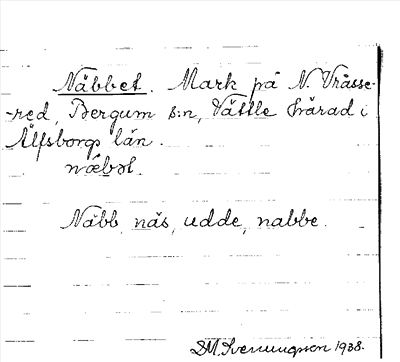 Näbbet. Mark på N. Vråsse-
-red, Bergum s:n, Vättle härad i
Älfsborgs län.
næbət.
Näbb, näs, udde, nabbe.
D.M. Svenungson 1938.